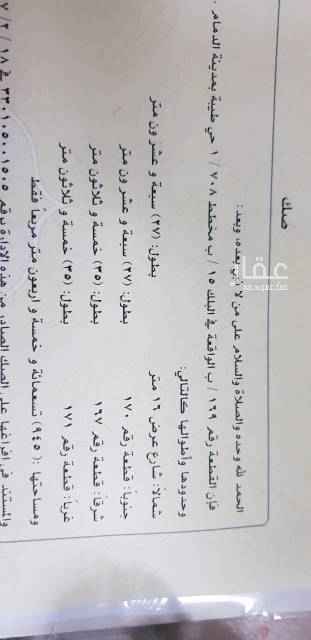 صك
الحمد لله وحده والصلاة والسلام على من لا نبي بعده، وبعد:
فإن القطعة رقم ١٦٩ / ب الواقعة في البلك ١٥ / ب مخطط ٧٠٨ / ١ حي طيبة بمدينة الدمام .
وحدودها وأطوالها كالتالي:
شمالا: شارع عرض ١٦ متر بطول: (٢٧) سبعة و عشرون متر
جنوبا: قطعة رقم ١٧٠ بطول: (٢٧) سبعة و عشرون متر
شرقا: قطعة رقم ١٦٧ بطول: (٣٥) خمسة و ثلاثون متر
غربا: قطعة رقم ١٧١ بطول: (٣٥) خمسة و ثلاثون متر
ومساحتها : (٩٤٥) تسعمائة و خمسة و اربعون متر مربعا فقط
والمستند في إفراغها على الصك الصادر من هذه الإدارة برقم ٣٣٠١٠٥٠٠١٥٠٥ في ١٨ / ٢ / ٧
عقار
aqar.fm